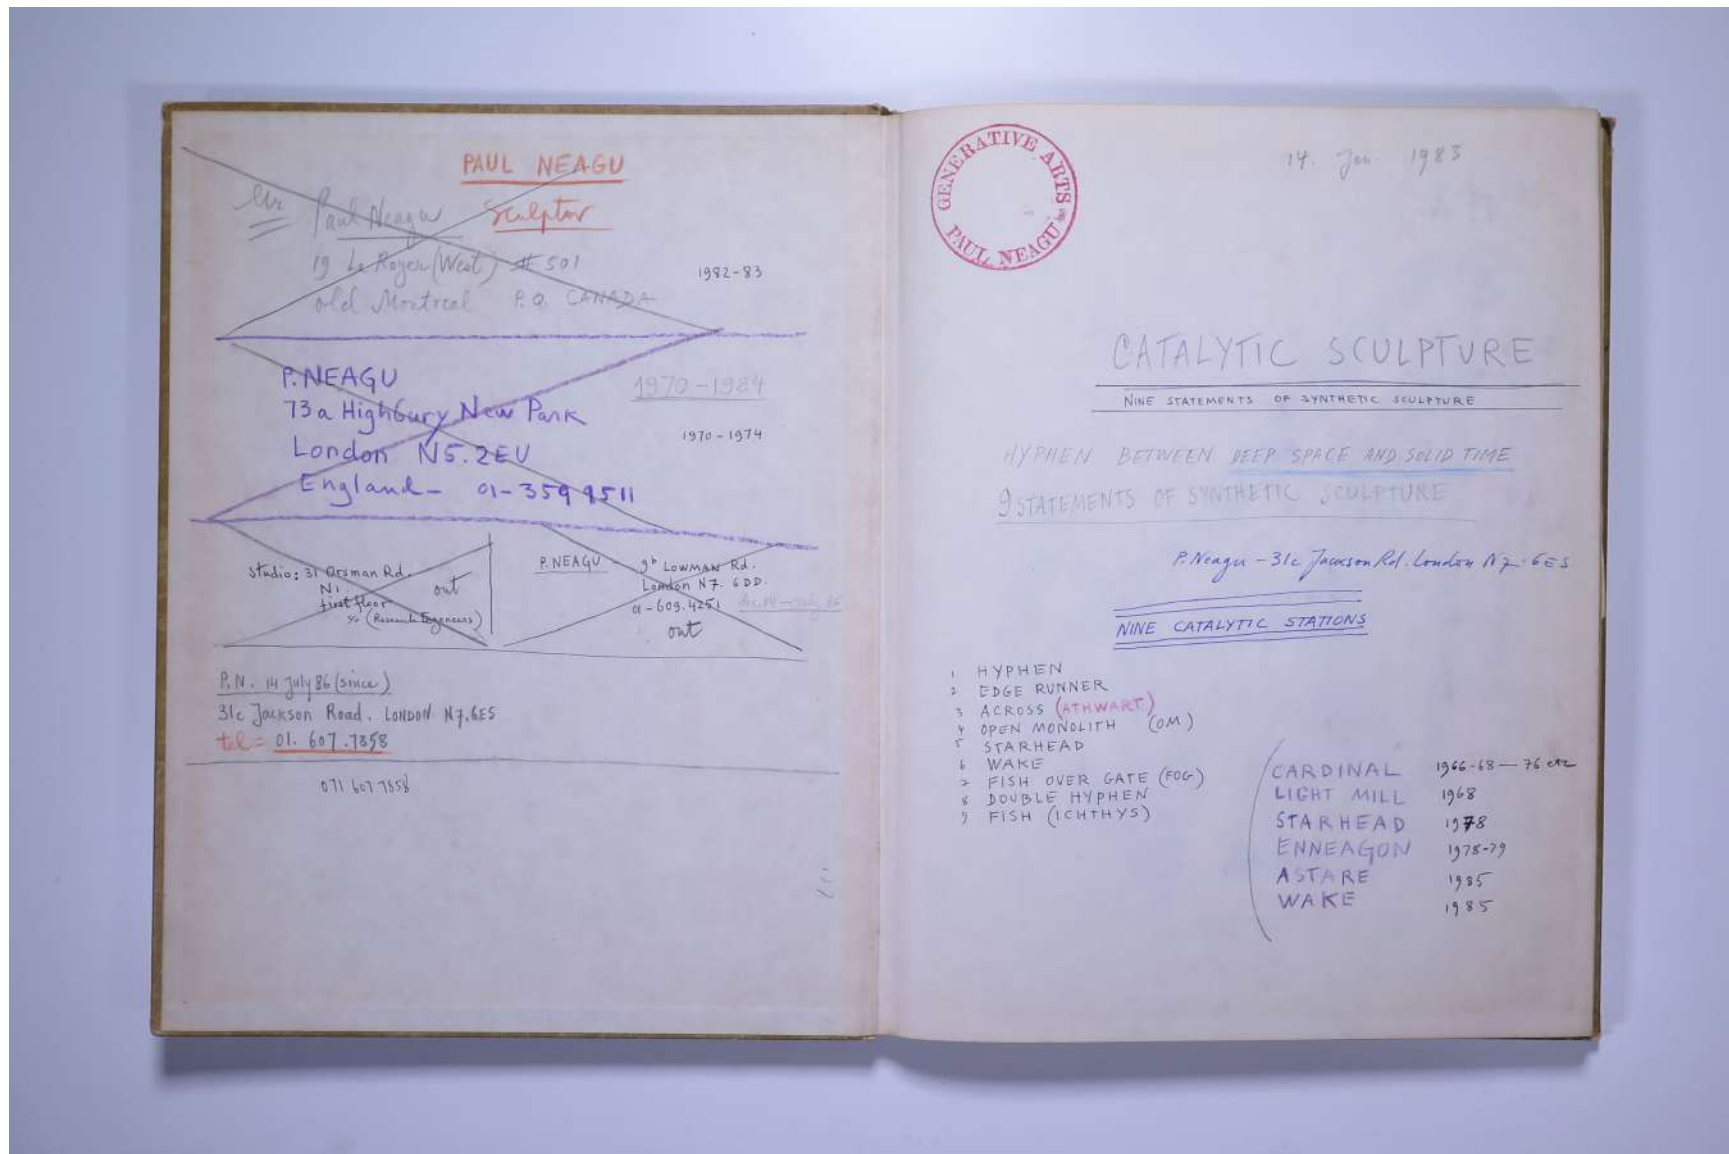 PAUL NEAGU
Sculptor
Mr Paul Neagu
19 Le Royer (West) # 501
old Montreal P.Q. CANADA
1982-83
P. NEAGU
73a Highbury New Park
London N5. 2EU
England - 01-359 9511
1970-1984
1970-1974
Studio: 31 Orsman Rd.
N1.
first floor
c/o (Research Engeneers)
out
P. NEAGU 9b LOWMAN Rd.
London N7. 6DD.
01-609.4251 dec. 84 - July 86
out
P.N. 14 July 86 (since)
31c Jackson Road. LONDON N7.6ES
tel = 01. 607.7858
071 607 7858
GENERATIVE ARTS
PAUL NEAGU
14. Jan. 1983
CATALYTIC SCULPTURE
NINE STATEMENTS OF SYNTHETIC SCULPTURE
HYPHEN BETWEEN DEEP SPACE AND SOLID TIME
9 STATEMENTS OF SYNTHETIC SCULPTURE
P. Neagu - 31c Jackson Rd. London N7. 6ES
NINE CATALYTIC STATIONS
1 HYPHEN
2 EDGE RUNNER
3 ACROSS (ATHWART)
4 OPEN MONOLITH (OM)
5 STARHEAD
6 WAKE
7 FISH OVER GATE (FOG)
8 DOUBLE HYPHEN
9 FISH (ICHTHYS)
CARDINAL 1966-68 - 76 etc
LIGHT MILL 1968
STARHEAD 1978
ENNEAGON 1978-79
ASTARE 1985
WAKE 1985